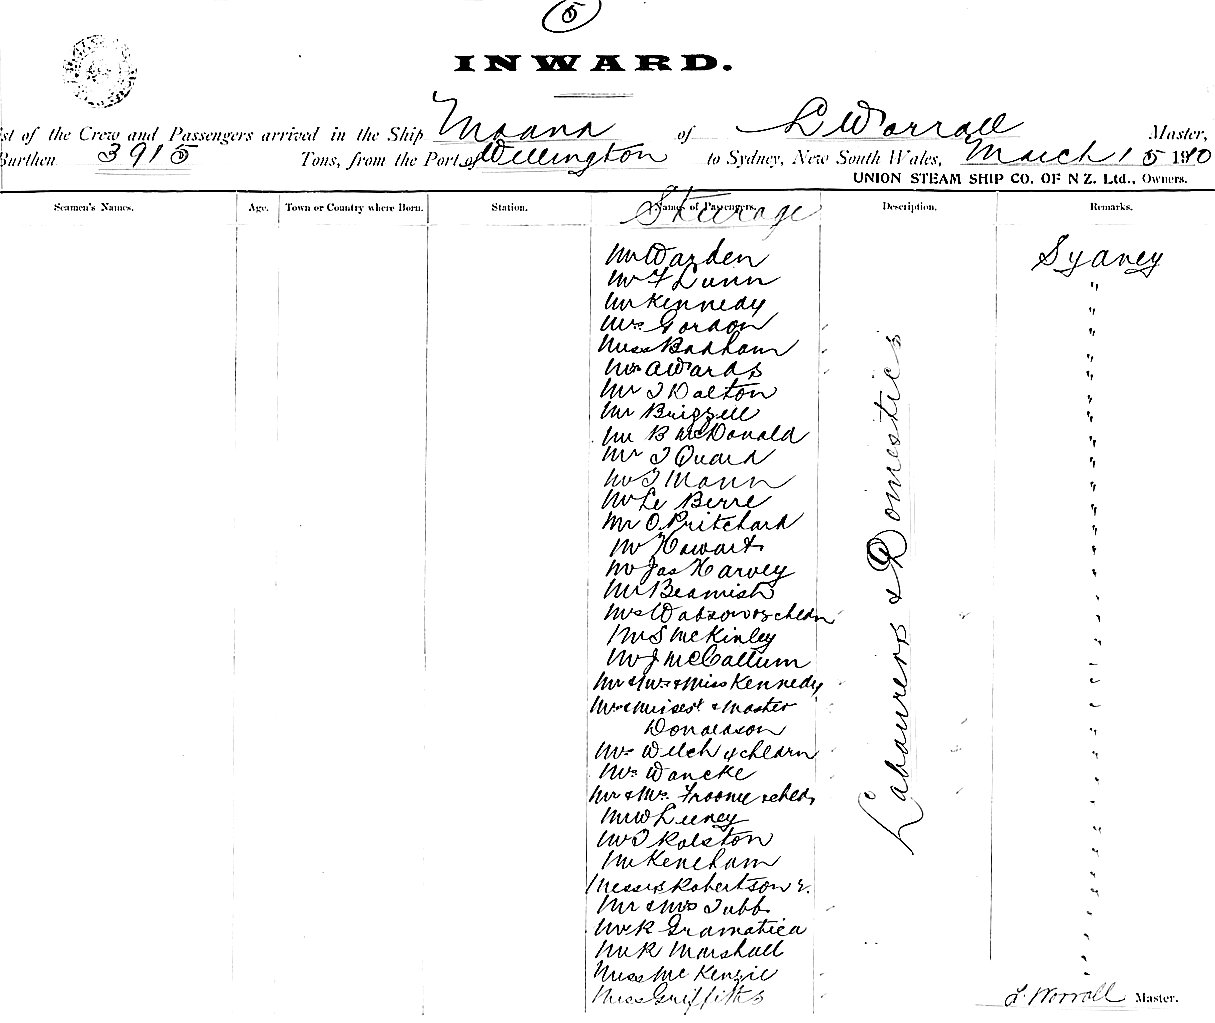 5
INWARD.
st of the Crew and Passengers arrived in the Ship Moana of L Worrall Master,
Burthen 3915 Tons, from the Port of Wellington to Sydney, New South Wales, March 15 1910
UNION STEAM SHIP CO. OF N Z. Ltd., Owners.
Seamen's Names. Age. Town or Country where Born. Station. Names of Passengers. Description. Remarks.
Steerage
Mr Warden Sydney
Mr F Lunn "
Mr Kennedy "
Mrs Gordon "
Miss Badham "
Mrs Awards "
Mr J Dalton "
Mr "
Mr B McDonald "
Mr J Quard "
Mr J Mann "
Mr Le Berre "
Mr O Pritchard "
Mr Howarts "
Mr Jas Harvey "
Mr Beamish "
Mrs childn "
Mr S McKinley "
Mr J McCallum "
Mr & Mrs & Miss Kennedy "
Mrs & Master "
Donaldson "
Mrs Welch & childrn "
Mrs Wancke "
Mr & Mrs Froome & child "
Mr W Lueney "
Mr J Ralston "
Mr "
Messrs Robertson 2. "
Mr & Mrs Tubb "
Mr K Gramatica "
Mr R Marshall "
Miss McKenzie "
Miss Griffiths
Labourers & Domestics
L Worrall Master.